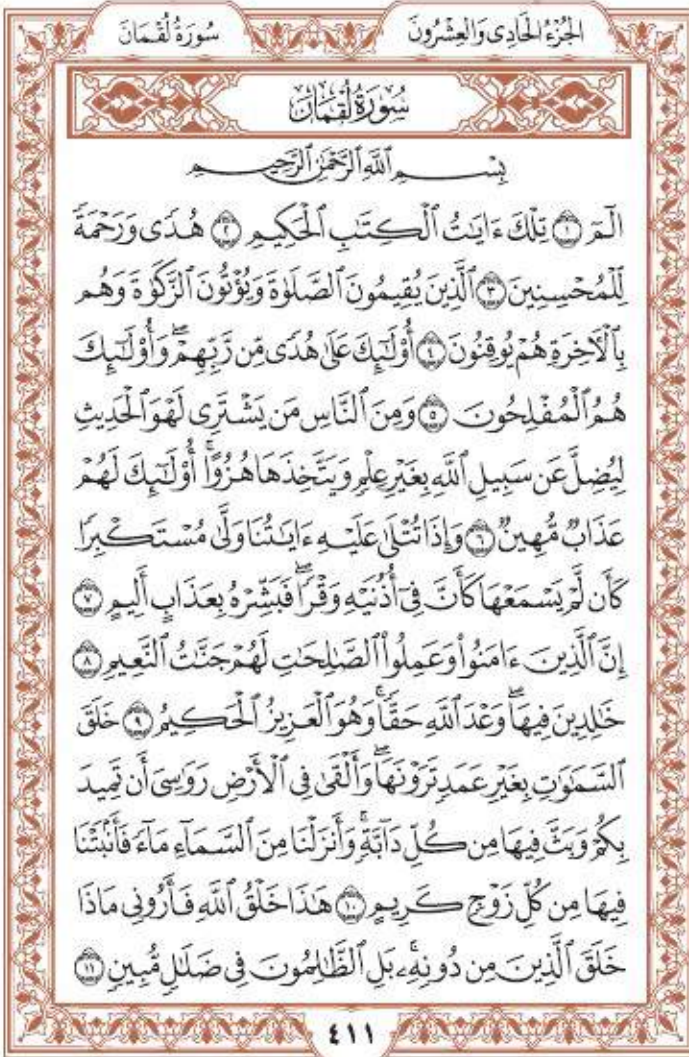 الجُزْءُ الحَادِى وَالعِشْرُونَ
سُورَةُ لُقْمَانَ
سُورَةُ لُقْمَانَ
بِسْمِ ٱللَّهِ ٱلرَّحْمَٰنِ ٱلرَّحِيمِ
الٓمٓ ١ تِلْكَ ءَايَٰتُ ٱلْكِتَٰبِ ٱلْحَكِيمِ ٢ هُدًى وَرَحْمَةً
لِّلْمُحْسِنِينَ ٣ ٱلَّذِينَ يُقِيمُونَ ٱلصَّلَوٰةَ وَيُؤْتُونَ ٱلزَّكَوٰةَ وَهُم
بِٱلْءَاخِرَةِ هُمْ يُوقِنُونَ ٤ أُو۟لَٰٓئِكَ عَلَىٰ هُدًى مِّن رَّبِّهِمْۖ وَأُو۟لَٰٓئِكَ
هُمُ ٱلْمُفْلِحُونَ ٥ وَمِنَ ٱلنَّاسِ مَن يَشْتَرِى لَهْوَ ٱلْحَدِيثِ
لِيُضِلَّ عَن سَبِيلِ ٱللَّهِ بِغَيْرِ عِلْمٍ وَيَتَّخِذَهَا هُزُوًاۚ أُو۟لَٰٓئِكَ لَهُمْ
عَذَابٌ مُّهِينٌ ٦ وَإِذَا تُتْلَىٰ عَلَيْهِ ءَايَٰتُنَا وَلَّىٰ مُسْتَكْبِرًا
كَأَن لَّمْ يَسْمَعْهَا كَأَنَّ فِىٓ أُذُنَيْهِ وَقْرًاۖ فَبَشِّرْهُ بِعَذَابٍ أَلِيمٍ ٧
إِنَّ ٱلَّذِينَ ءَامَنُوا۟ وَعَمِلُوا۟ ٱلصَّٰلِحَٰتِ لَهُمْ جَنَّٰتُ ٱلنَّعِيمِ ٨
خَٰلِدِينَ فِيهَاۖ وَعْدَ ٱللَّهِ حَقًّاۚ وَهُوَ ٱلْعَزِيزُ ٱلْحَكِيمُ ٩ خَلَقَ
ٱلسَّمَٰوَٰتِ بِغَيْرِ عَمَدٍ تَرَوْنَهَاۖ وَأَلْقَىٰ فِى ٱلْأَرْضِ رَوَٰسِىَ أَن تَمِيدَ
بِكُمْ وَبَثَّ فِيهَا مِن كُلِّ دَآبَّةٍۚ وَأَنزَلْنَا مِنَ ٱلسَّمَآءِ مَآءً فَأَنۢبَتْنَا
فِيهَا مِن كُلِّ زَوْجٍ كَرِيمٍ ١٠ هَٰذَا خَلْقُ ٱللَّهِ فَأَرُونِى مَاذَا
خَلَقَ ٱلَّذِينَ مِن دُونِهِۦۚ بَلِ ٱلظَّٰلِمُونَ فِى ضَلَٰلٍ مُّبِينٍ ١١
٤١١